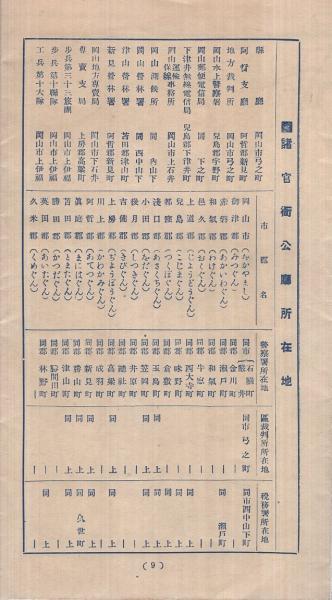 諸官衙公廳所在地
縣廳 岡山市弓之町
阿哲支廳 阿哲郡新見町
地方裁判所 岡山市弓之町
岡山水上警察署 兒島郡宇野町
岡山郵便電信局 同 下之町
下津井無線電信局 兒島郡下津井町
岡山運輸保線事務所 岡山市上石井
岡山測候所 同 内山下
岡山營林署 同 西中山下
津山營林署 苫田郡津山町
新見營林署 阿哲郡新見町
岡山地方專賣局 岡山市下石井
專賣支局 上房郡高梁町
歩兵第三十三旅團 岡山市上伊福
歩兵第十聯隊 岡山市上伊福
工兵第十大隊 岡山市上伊福
市郡名 警察署所在地 區裁判所所在地 税務署所在地
岡山市(おかやまし) 同市 石關町 同市弓之町 同市西中山下
御津郡(みつぐん) 同郡金川町 ー ー
赤磐郡(あかいわぐん) 同郡瀬戸町 ー 同 瀬戸町
和氣郡(わけぐん) 同郡和氣町 ー ー
邑久郡(おくぐん) 同郡牛窓町 ー ー
上道郡(じようどうぐん) 同郡西大寺町
兒島郡(こじまぐん) 同郡味野町
都窪郡(つくぼぐん) 同郡倉敷町
淺口郡(あさくちぐん) 同郡玉島町 同上
小田郡(をだぐん) 同郡笠岡町 同上
後月郡(しつきぐん) 同郡井原町
吉備郡(きびぐん) 同郡總社町
上房郡(じようぼうぐん) 同郡高梁町 同上
川上郡(かわかみぐん) 同郡成羽町
阿哲郡(あてつぐん) 同郡新見町
眞庭郡(まにはぐん) 同郡勝山町 同上 同 久世町
苫田郡(とまたぐん) 同郡津山町 同上 同上
勝田郡(かつたぐん) 同郡勝間田町
英田郡(あいだぐん) 同郡林野町
久米郡(くめぐん)
(9)